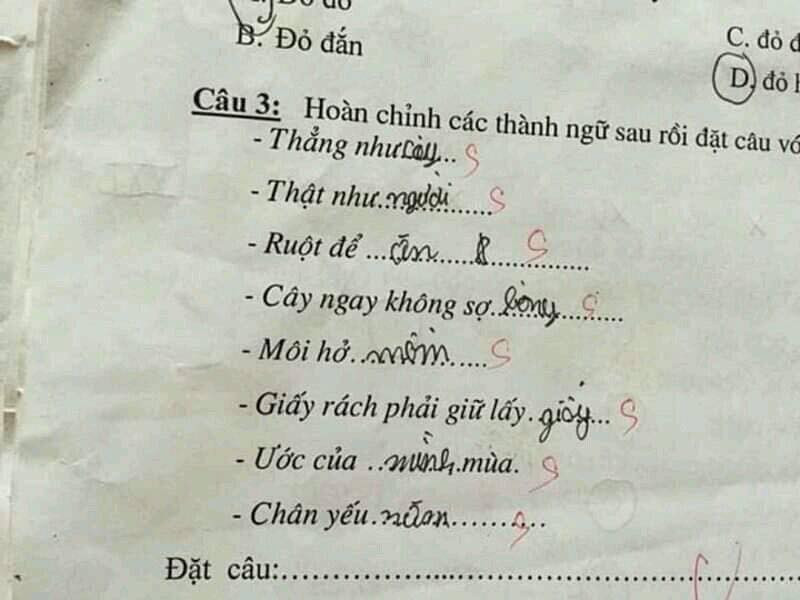 B. Đỏ đắn
C. đỏ đ
D. đỏ h
Câu 3: Hoàn chỉnh các thành ngữ sau rồi đặt câu vớ
- Thẳng như cây... S
- Thật như..người....... S
- Ruột để ...ăn............. S
- Cây ngay không sợ..bòng........ S
- Môi hở..mồm...... S
- Giấy rách phải giữ lấy.giấy... S
- Ước của ..mình.mùa. S
- Chân yếu.nằm.......... S
Đặt câu:..........................................